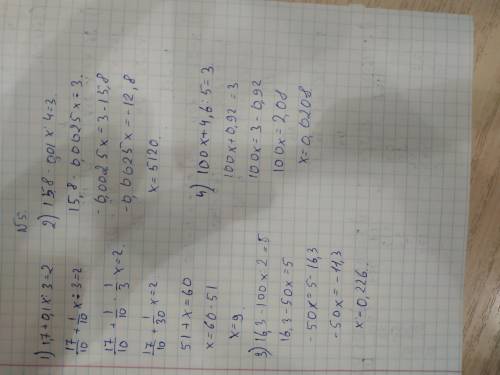 N5.
1) 1,7 + 0,1x : 3 = 2
17/10 + 1/10 x : 3 = 2
17/10 + 1/10 · 1/3 x = 2.
17/10 + 1/30 x = 2
51 + x = 60
x = 60 - 51
x = 9.
2) 15,8 - 0,01x : 4 = 3.
15,8 - 0,0025x = 3.
-0,0025x = 3 - 15,8
-0,0025x = -12,8
x = 5120.
3) 16,3 - 100x : 2 = 5
16,3 - 50x = 5
-50x = 5 - 16,3
-50x = -11,3
x = 0,226.
4) 100x + 4,6 : 5 = 3.
100x + 0,92 = 3
100x = 3 - 0,92
100x = 2,08
x = 0,0208